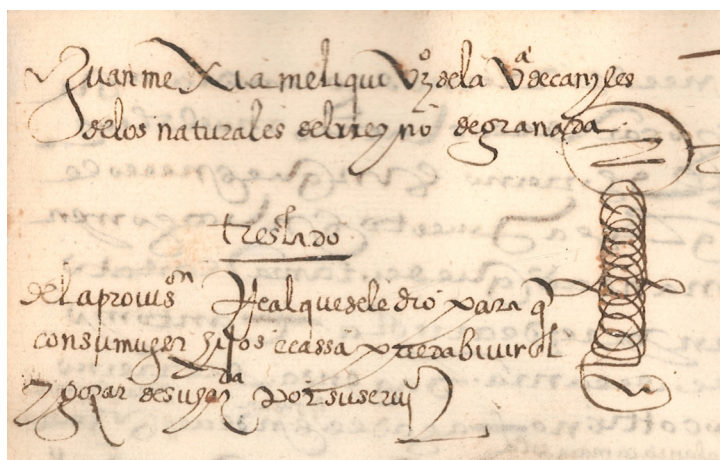 Juan meXia meliqui Vzº dela Vª de canyles
delos naturales del rreyno de granada
treslado
dela prouisºn Real que se le dio para q
con su muger hijos e cassa pueda biuir
y gozar de su hazda por su